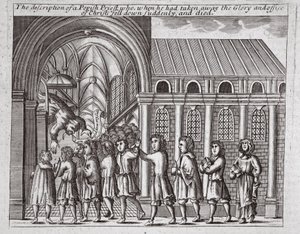 The description of a Popish Priest, who, when he had taken away the Glory and office
of Christ, fell down suddenly, and died.